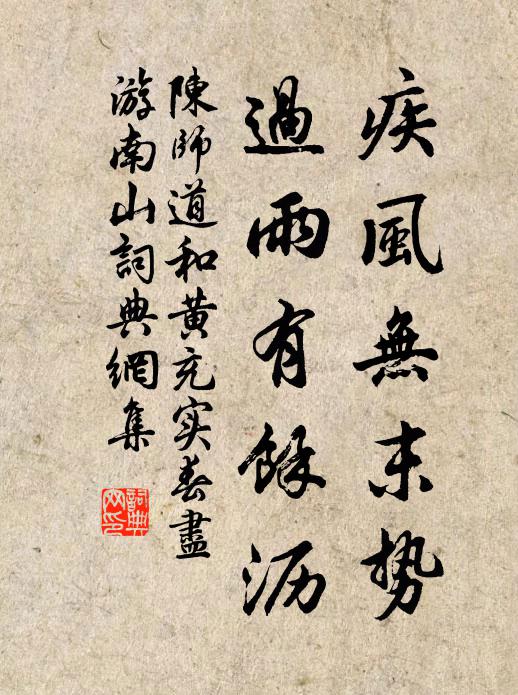 疾風無末勢
過雨有餘沥
陳師道和黄充实春盡
游南山詞典網集
詞典網印